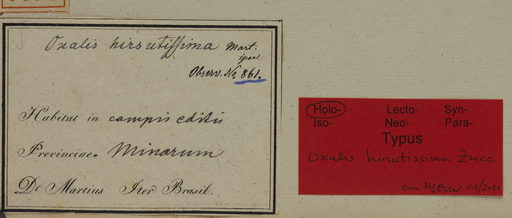 Oxalis hirsutissima Mart.
Observ. No 861.
Habitat in campis editis
Provinciae Minarum
Dr Martius Iter Brasil.
Holo- Lecto- Syn-
Iso- Neo- Para-
Typus
Oxalis hirsutissima Zucc